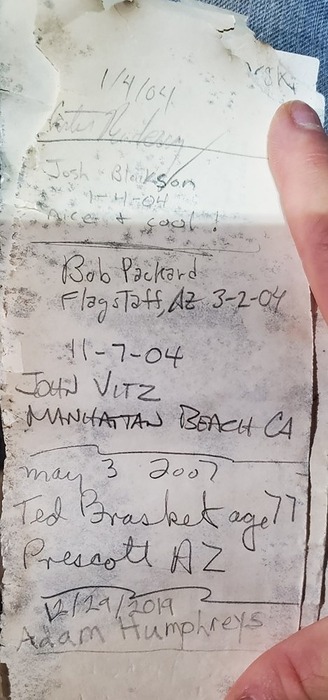 1/4/04
Josh Blakson
1-4-04
nice + cool!
Bob Packard
Flagstaff, AZ 3-2-04
11-7-04
JOHN VITZ
MANHATTAN BEACH CA
may 3 2007
Ted Brasket age 77
Prescott AZ
12/29/2019
Adam Humphreys